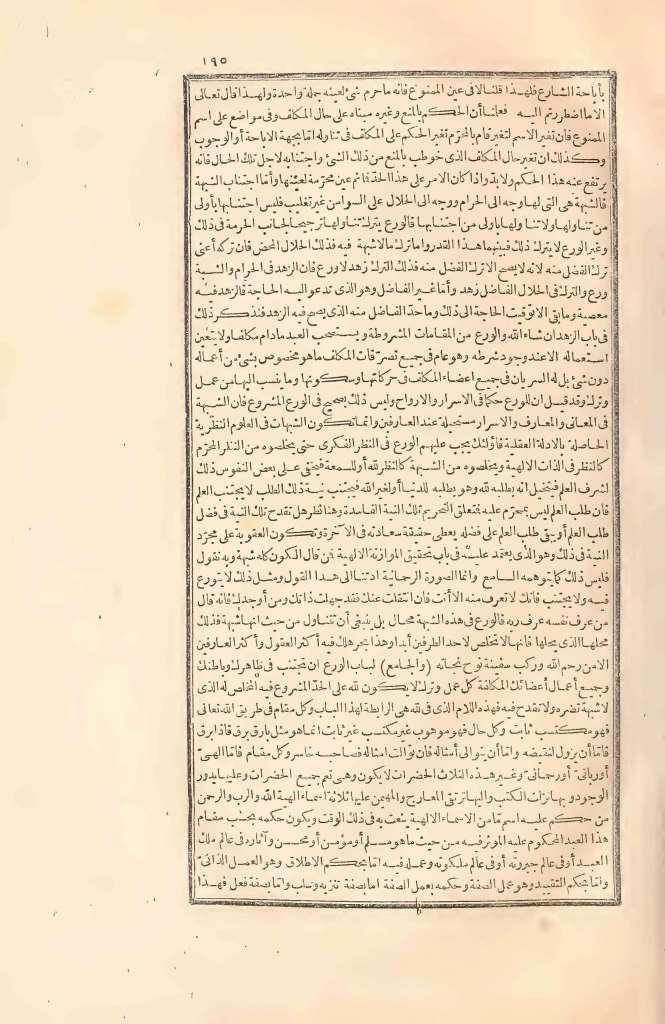 ١٩٥
باباحة الشارع فلهذا قلنا لا فى عين الممنوع فانه ما حرم شئ لعينه جملة واحدة ولهذا قال تعالى
الا ما اضطررتم اليه فعلنا أن الحكم بالمنع وغيره مبناه على حال المكلف وفى مواضع على اسم
الممنوع فان تغير الاسم لتغير قام بالمحرّم تغير الحكم على المكلف فى تناوله امّا بجهة الاباحة أو الوجوب
وكذلك ان تغير حال المكلف الذى خوطب بالمنع من ذلك الشئ واجتنابه لاجل تلك الحال فانه
يرتفع عنه هذا الحكم ولا بدّ واذا كان الامر على هذا الحدّ فما ثم عين محرّمة لعينها وأمّا اجتناب الشبهة
فالشبهة هى التى لها وجه الى الحرام ووجه الى الحلال على السوا من غير تغليب فليس اجتنابها بأولى
من تناولها ولا تناولها باولى من اجتنابها فالورع يترك تناولها ترجيحا لجانب الحرمة فى ذلك
وغير الورع لا يترك ذلك فبينهما هذا القدر واما ترك ما لا شبهة فيه فذلك الحلال المحض فان تركه أعنى
ترك الفضل منه لانه لا يصح الا ترك الفضل منه فذلك الترك زهد لا ورع فان الزهد فى الحرام والشبهة
ورع والترك فى الحلال الفاضل زهد وأمّا غير الفاضل وهو الذى تدعو اليه الحاجة فالزهد فيه
معصية وما بقى الا توقيت الحاجة الى ذلك وما حدّ الفاضل منه الذى يصح فيه الزهد فنذكر ذلك
فى باب الزهد ان شاء الله والورع من المقامات المشروطة ويستصحب العبد مادام مكلفا ولا يتعين
استعماله الا عند وجود شرطه وهو عام فى جميع تصرّفات المكلف ما هو مخصوص بشئ من أعماله
دون شئ بل له السريان فى جميع اعضاء المكلف فى حركاتها وسكونها وما ينسب اليها من عمل
وترك وقد قيل ان للورع حكما فى الاسرار والارواح وليس ذلك بصحيح فى الورع المشروع فان الشبهة
فى المعانى والمعارف والاسرار مستحيلة عند العارفين وانما تكون الشبهات فى العلوم النظرية
الحاصلة بالادلة العقلية فأولئك يجب عليهم الورع فى النظر الفكرى حتى يخلصوه من النظر المحرّم
كالنظر فى الذات الالهية ويخلصوه من الشبهة كالنظر لله أو للسمعة فيخفى على بعض النفوس ذلك
لشرف العلم فيتخيل انه يطلبه لله وهو يطلبه للدنيا أو لغير الله فيجتنب نية ذلك الطلب لا يجتنب العلم
فان طلب العلم ليس بمحرّم عليه فتعلق التحريم تلك النية الفاسدة وهنا نظر هل تقدح تلك النية فى فضل
طلب العلم أو يبقى طلب العلم على فضله يعطى حقيقة سعادته فى الآخرة وتكون العقوبة على مجرّد
النية فى ذلك وهو الذى يعتمد عليه فى باب تحقيق الموازنة الالهية فمن قال الكون كله شبهة وبه نقول
فليس ذلك كما يتوهمه السامع وانما الصورة الرحمانية ادتنا الى هذا القول ومثل ذلك لا يتورع
فيه ولا يجتنب فانك لا تعرف منه الا أنت فان انتقلت عنك فقد جهلت ذاتك ومن أوجدك فانه قال
من عرف نفسه عرف ربه فالورع فى هذه الشبهة محال بل ينبغى أن تتناول من حيث انها شبهة فذلك
محلها الذى يحلها فانها لا تخلص لاحد الطرفين أبدا وهذا بحر هلك فيه أكثر العقول وأكثر العارفين
الا من رحم الله وركب سفينة نوح نجاته (والجامع) لباب الورع ان تجتنب فى ظاهرك وباطنك
وجميع أعمال أعضائك المكلفة كل عمل وترك لا يكون لله على الحدّ المشروع فيه المخلص له الذى
لا شبهة تضره ولا تقدح فيه فهذه اللام الذى فى لله هى الرابطة لهذا الباب وكل مقام فى طريق الله تعالى
فهو مكتسب ثابت وكل حال فهو موهوب غير مكتسب غير ثابت انما هو مثل بارق برق فاذا برق
فامّا أن يزول لنقيضه وامّا أن يتوالى أمثاله فان توالت امثاله فصاحبه خاسر وكل مقام فامّا الهىّ
أو ربانىّ أو رحمانىّ وغير هذه الثلاث الحضرات لا يكون وهى تعم جميع الحضرات وعليها يدور
الوجود وبها نزلت الكتب واليها ترتقى المعارج والمهيمن عليها ثلاثة اسماء الهية الله والرب والرحمن
من حكم عليه اسم مّا من الاسماء الالهية ينعت به فى ذلك الوقت ويكون حكمه بحسب مقام
هذا العبد المحكوم عليه المؤثر فيه من حيث ما هو مسلم أو مؤمن أو محسن وآثاره فى عالم ملك
العبد أو فى عالم جبروته أو فى عالم ملكوته وعمله فيه امّا بحكم الاطلاق وهو العمل الذاتىّ
وامّا بحكم التقييد وهو عمل الصفة وحكمه بعمل الصفة امّا بصفة تنزيه وسلب وامّا بصفة فعل فهذا